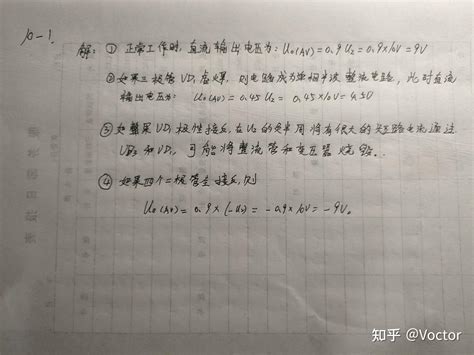 10-1.
解: ① 正常工作时, 直流输出电压为: Uo(AV)=0.9U₂=0.9×10V=9V
② 如果二极管VD₁虚焊, 则电路成为单相半波整流电路, 此时直流
输出电压为: Uo(AV)=0.45U₂=0.45×10V=4.5V
③ 如果VD₁极性接反, 在U₂的负半周将有很大的短路电流通过
VD₂和VD₁, 可能将整流管和变压器烧毁.
④ 如果四个二极管全接反, 则
Uo(AV)=0.9×(-U₂)=-0.9×10V=-9V。
知乎 @Voctor